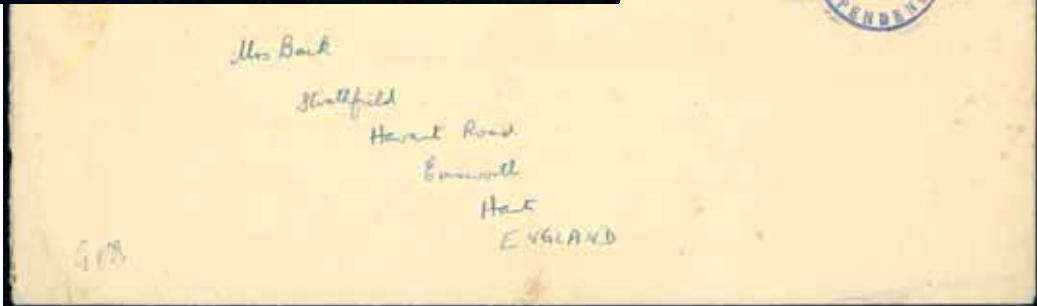 PENDEN
Mrs Back
Strathfield
Havant Road
Emsworth
Hants
ENGLAND